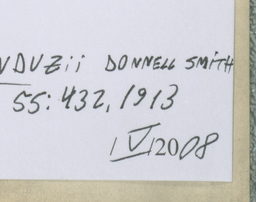 NDUZii DONNELL SMITH
55: 432, 1913
1 V 12008